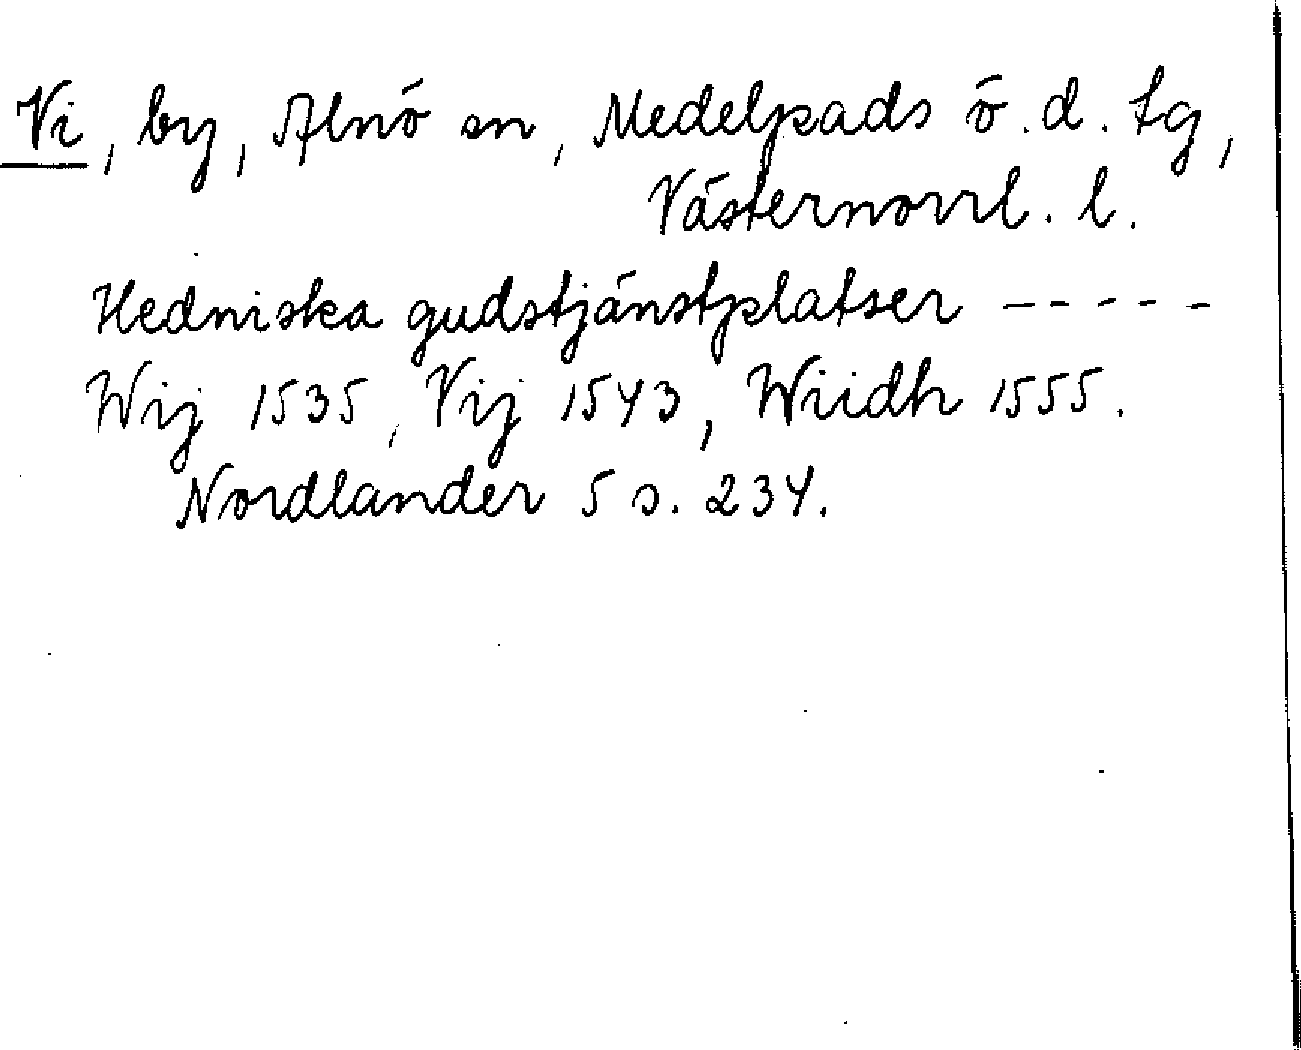 Vi, by, Alnö sn, Medelpads ö. d. tg,
Västernorrl. l.
Hedniska gudstjänstplatser - - - - -
Wij 1535, Vij 1543, Wiidh 1555.
Nordlander 5 s. 234.